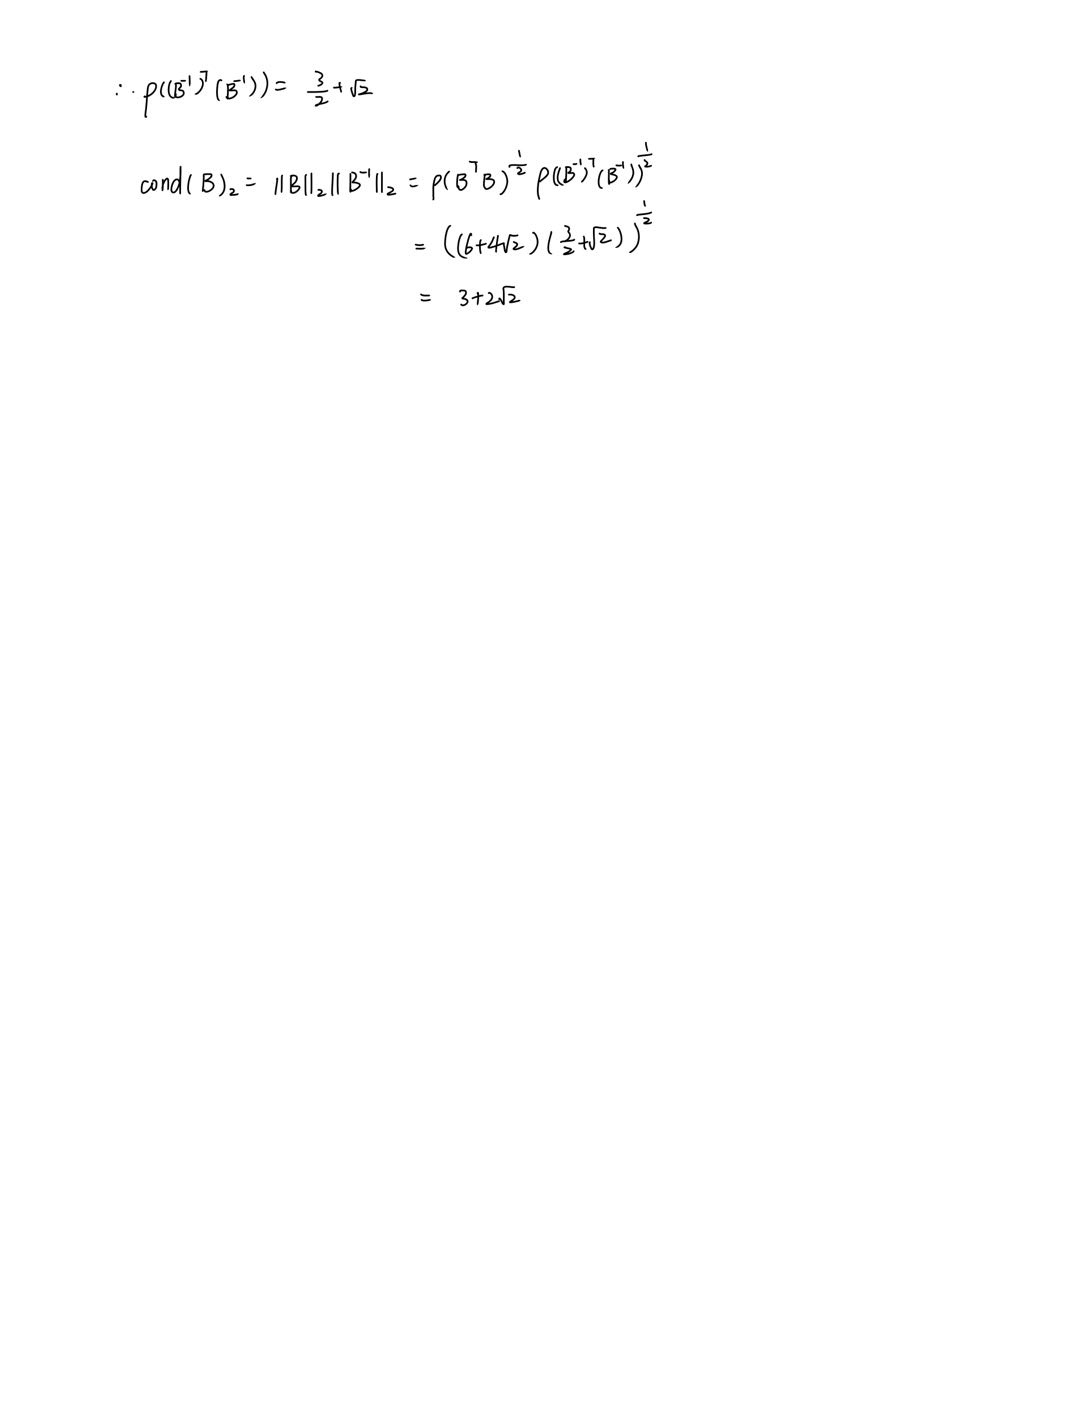 ∴ ρ((B⁻¹)ᵀ(B⁻¹)) = 3/2 + √2
cond(B)₂ = ||B||₂||B⁻¹||₂ = ρ(BᵀB)^(1/2) ρ((B⁻¹)ᵀ(B⁻¹))^(1/2)
= ((6+4√2)(3/2+√2))^(1/2)
= 3+2√2